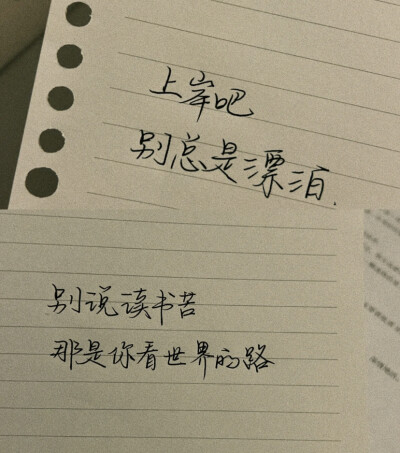 上岸吧
别总是漂泊.
别说读书苦
那是你看世界的路